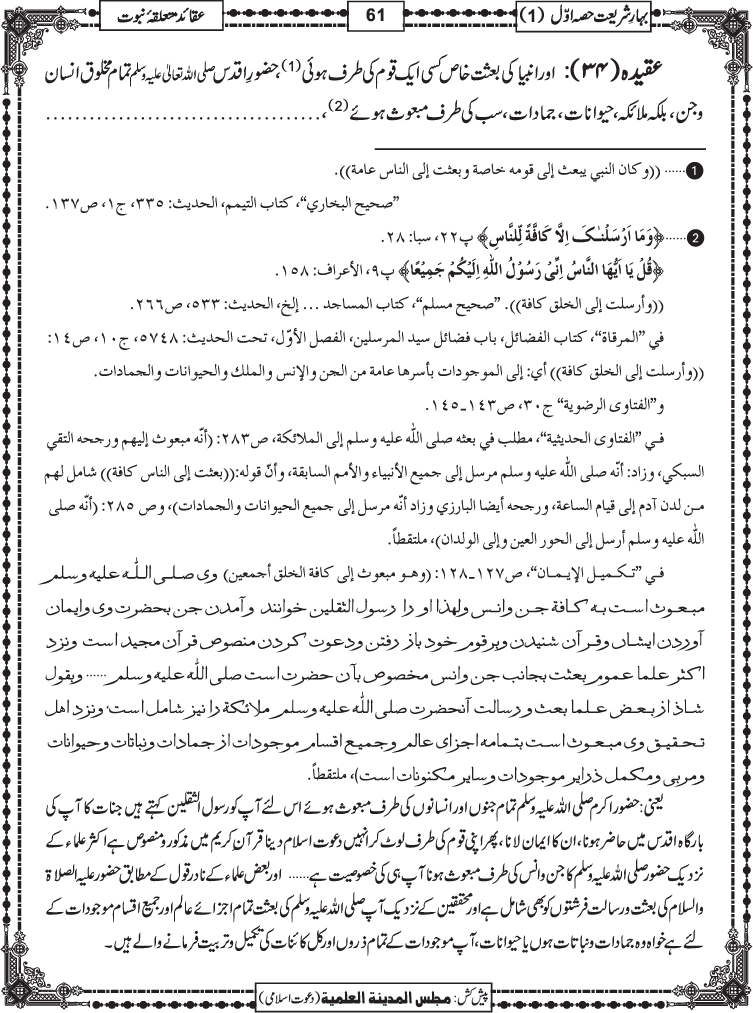 بہارِ شریعت حصہ اوّل (1)
61
عقائد متعلقۂ نبوت
عقیدہ (۳۴): اور انبیا کی بعثت خاص کسی ایک قوم کی طرف ہوئی(1)، حضورِ اقدس صلی اللہ تعالیٰ علیہ وسلم تمام مخلوق انسان
و جن، بلکہ ملائکہ، حیوانات، جمادات، سب کی طرف مبعوث ہوئے(2)، ......................................
1...... ((وكان النبي يبعث إلى قومه خاصة وبعثت إلى الناس عامة)).
”صحيح البخاري“، كتاب التيمم، الحديث: ۳۳۵، ج۱، ص۱۳۷.
2...... ﴿وَمَا اَرْسَلْنٰکَ اِلَّا کَافَّةً لِّلنَّاسِ﴾ پ۲۲، سبا: ۲۸.
﴿قُلْ یَا اَیُّهَا النَّاسُ اِنِّیْ رَسُوْلُ اللّٰهِ اِلَیْکُمْ جَمِیْعًا﴾ پ۹، الأعراف: ۱۵۸.
((وأرسلت إلى الخلق كافة)). ”صحيح مسلم“، كتاب المساجد ... إلخ، الحديث: ۵۳۳، ص۲۶۶.
في ”المرقاة“، كتاب الفضائل، باب فضائل سيد المرسلين، الفصل الأوّل، تحت الحديث: ۵۷۴۸، ج۱۰، ص۱۴:
((وأرسلت إلى الخلق كافة)) أي: إلى الموجودات بأسرها عامة من الجن والإنس والملك والحيوانات والجمادات.
و”الفتاوى الرضوية“ ج۳۰، ص۱۴۳ـ۱۴۵.
فـي ”الفتاوى الحديثية“، مطلب في بعثه صلى الله عليه وسلم إلى الملائكة، ص۲۸۳: (أنّه مبعوث إليهم ورجحه التقي
السبكي، وزاد: أنّه صلى الله عليه وسلم مرسل إلى جميع الأنبياء والأمم السابقة، وأنّ قوله:((بعثت إلى الناس كافة)) شامل لهم
مـن لدن آدم إلى قيام الساعة، ورجحه أيضا البارزي وزاد أنّه مرسل إلى جميع الحيوانات والجمادات)، وص ۲۸۵: (أنّه صلى
الله عليه وسلم أرسل إلى الحور العين وإلى الولدان)، ملتقطاً.
فـي ”تـكـمـيل الإيـمـان“، ص۱۲۷ـ۱۲۸: (وهـو مبعوث إلى كافة الخلق أجمعين) وى صـلـى اللّٰـه عليه وسـلم
مبـعـوث اسـت بـه كـافة جـن وانـس ولهذا او را رسول الثقلين خوانند وآمدن جن بحضرت وى وايمان
آوردن ايشـان وقـرآن شنيدن وبرقوم خود باز رفتن ودعوت كردن منصوص قرآن مجيد است ونزد
اكثر علما عموم بعثت بجانب جن وانس مخصوص بآن حضرت است صلى الله عليه وسلم...... وبقول
شاذ از بعض علما بعث ورسالت آنحضرت صلى الله عليه وسلم ملائكة را نيز شامل است، ونزد اهل
تـحـقـيق وى مبـعـوث است بتمامه اجزاى عالم وجميع اقسام موجودات از جمادات ونباتات وحيوانات
ومربى ومكمل ذراير موجودات وساير مكنونات است)، ملتقطاً.
یعنی: حضور اکرم صلی اللہ علیہ وسلم تمام جنوں اور انسانوں کی طرف مبعوث ہوئے اس لئے آپ کو رسول الثقلین کہتے ہیں جنات کا آپ کی
بارگاہ اقدس میں حاضر ہونا، ان کا ایمان لانا، پھر اپنی قوم کی طرف لوٹ کر انہیں دعوت اسلام دینا قرآن کریم میں مذکور و منصوص ہے اکثر علماء کے
نزدیک حضور صلی اللہ علیہ وسلم کا جن و انس کی طرف مبعوث ہونا آپ ہی کی خصوصیت ہے...... اور بعض علماء کے نادر قول کے مطابق حضور علیہ الصلاۃ
والسلام کی بعثت و رسالت فرشتوں کو بھی شامل ہے اور محققین کے نزدیک آپ صلی اللہ علیہ وسلم کی بعثت تمام اجزائے عالم اور جمیع اقسام موجودات کے
لئے ہے خواہ وہ جمادات و نباتات ہوں یا حیوانات، آپ موجودات کے تمام ذروں اور کل کائنات کی تکمیل و تربیت فرمانے والے ہیں۔
پیش کش: مجلس المدینة العلمیة (دعوت اسلامی)